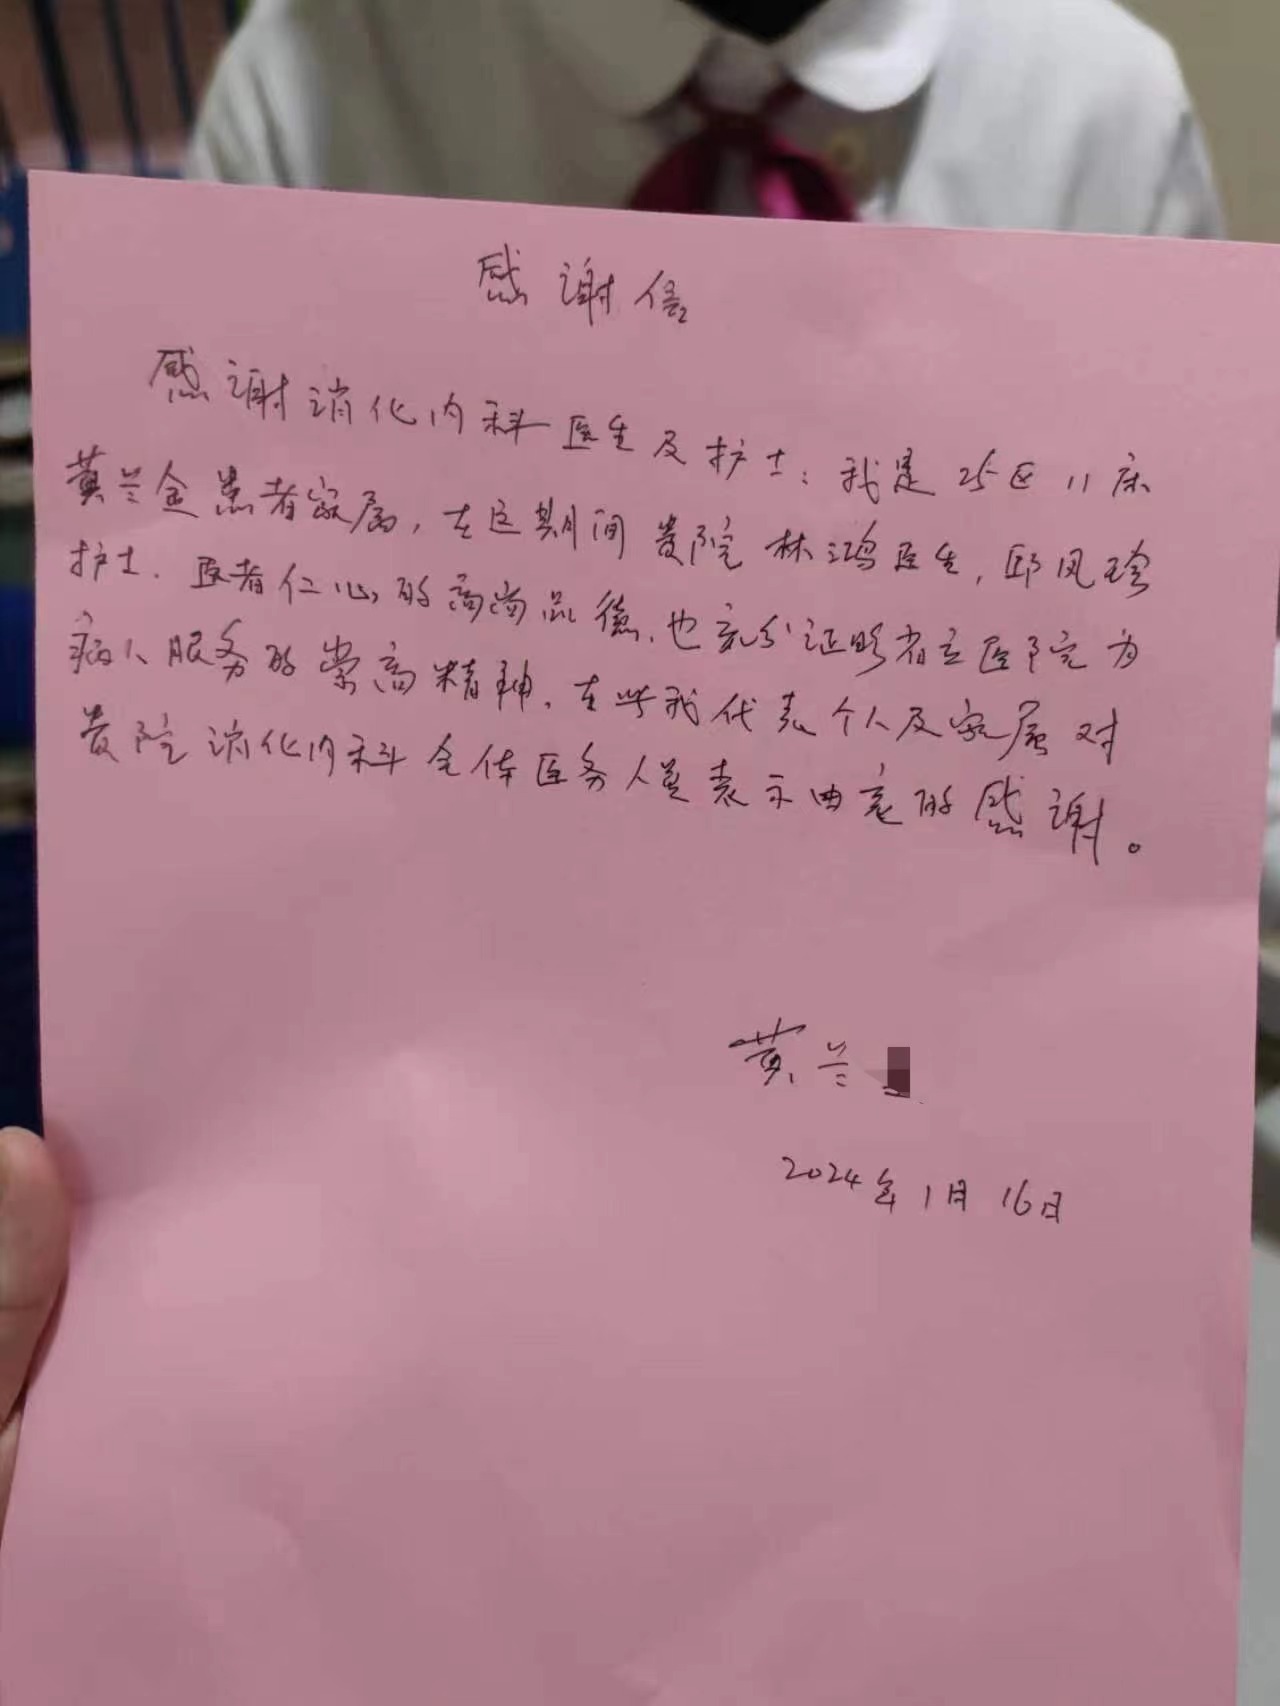 感谢信
感谢消化内科医生及护士：我是25区11床
黄兰金患者家属，在医期间贵院林鸿医生，邱凤珍
护士．医者仁心的高尚品德．也充分证明省立医院为
病人服务的崇高精神．在此我代表个人及家属对
贵院消化内科全体医务人员表示由衷的感谢。
黄兰
2024年1月16日